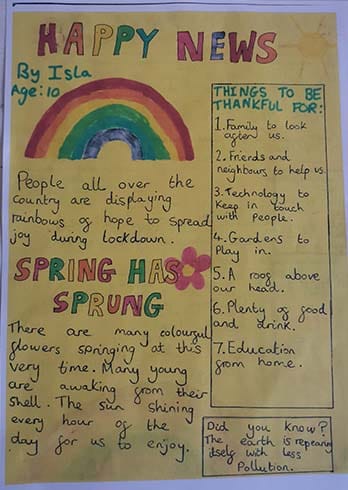 HAPPY NEWS
By Isla
Age: 10
People all over the
country are displaying
rainbows of hope to spread
joy during lockdown.
SPRING HAS
SPRUNG
There are many colourful
flowers springing at this
very time. Many young
are awaking from their
shell. The sun shining
every hour of the
day for us to enjoy.
THINGS TO BE
THANKFUL FOR:
1. Family to look
after us.
2. Friends and
neighbours to help us.
3. Technology to
keep in touch
with people.
4. Gardens to
Play in.
5. A roof above
our head.
6. Plenty of food
and drink.
7. Education
from home.
Did you know?
The earth is repearing
itself with less
Pollution.